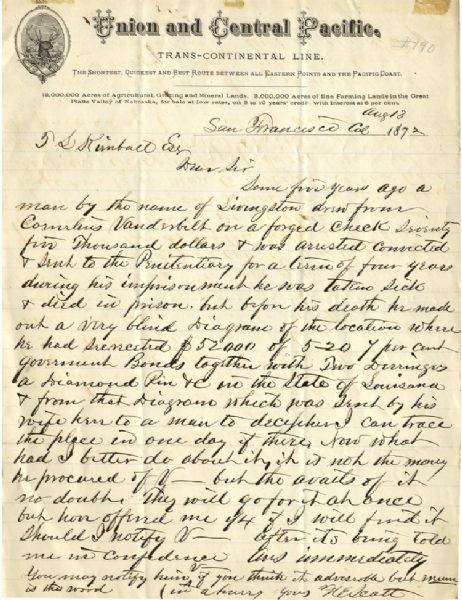 #190
Union and Central Pacific.
TRANS-CONTINENTAL LINE.
THE SHORTEST, QUICKEST AND BEST ROUTE BETWEEN ALL EASTERN POINTS AND THE PACIFIC COAST.
12,000,000 Acres of Agricultural, Grazing and Mineral Lands. 3,000,000 Acres of fine Farming Lands in the Great
Platte Valley of Nebraska, for sale at low rates, on 5 to 10 years' credit with interest at 6 per cent.
Aug 13
San Francisco Cal 1872
T L Kimball Esq
Dear Sir
Some five years ago a
man by the name of Livingston drew from
Cornelius Vanderbilt on a forged check Seventy
five Thousand dollars & was arrested convicted
& sent to the Penitentiary for a term of four years
during his imprisonment he was taken sick
& died in prison. but before his death he made
out a very blind Diagram of the location where
he had secreted $52000 of 5-20 7 per cent
Goverment Bonds together with Two Derringers
a Diamond Pin &c in the State of Louisana
& from that Diagram which was sent by his
wife here to a man to decipher, can trace
the place in one day if there, Now what
had I better do about it, it is not the money
he procured of V— but the avails of it
no doubt. They will go for it at once
but have offered me 1/4 if I will find it
Should I notify V— after its being told
me in confidence Ans immediately
You may notify him, if you think it adviseable but mum
is the word (in a hurry yours H E Scott